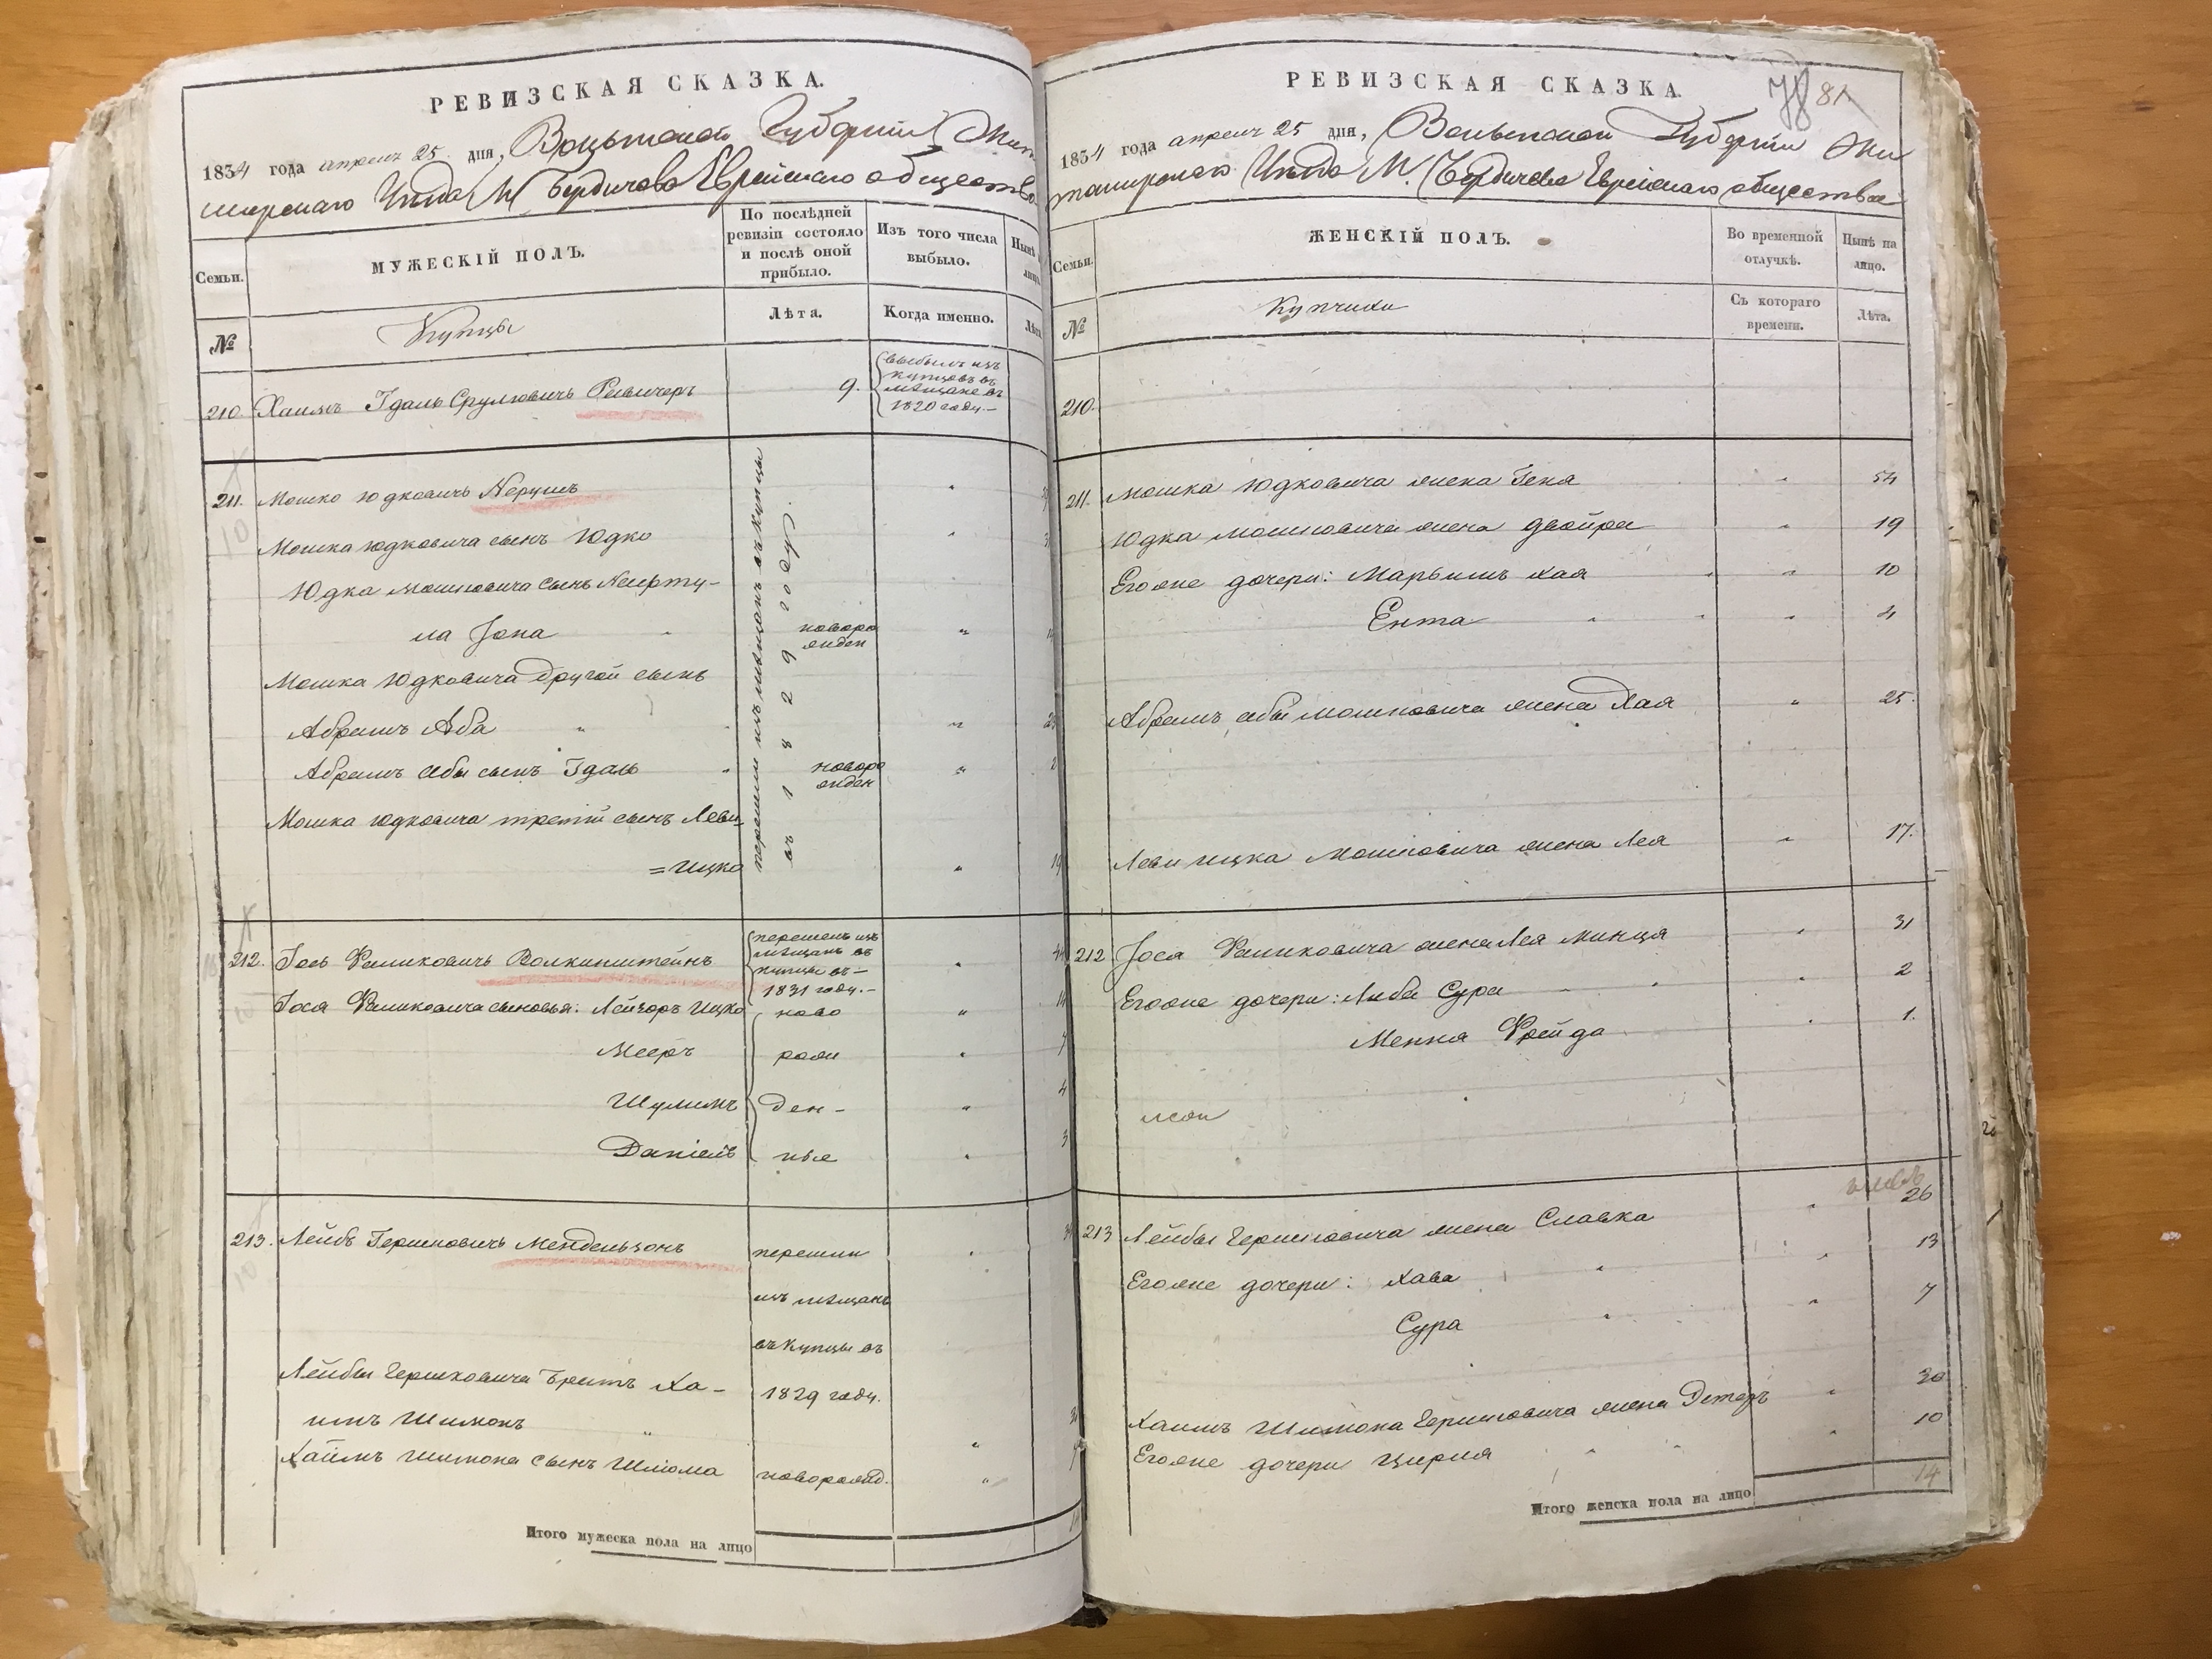 РЕВИЗСКАЯ СКАЗКА.
1834 года апреля 25 дня, Волынской Губернии Жит
мирскаго Уезда М Бердичева Еврейскаго общества
Семьи.
МУЖЕСКІЙ ПОЛЪ.
По послѣдней ревизіи состояло и послѣ оной прибыло.
Изъ того числа выбыло.
Нынѣ
№
Купцы
Лѣта.
Когда именно.
Лѣта
210. Хаимъ Гдаль Срулювичъ 9. выбылъ изъ
купцовъ въ
мѣщане въ
1820 году.–
211. Мошко Юдковичъ
перешли изъ мѣщанъ въ купцы
въ 1829 году.
Мошка Юдковича сынъ Юдко
Юдка Мошковича сынъ Нафту–
ла Іона новоро
жден
Мошка Юдковича другой сынъ
Абрамъ Аба
Абрамъ Абы сынъ Гдаль новоро
жден
Мошка Юдковича третій сынъ Леви
=Ицко
212. Іось Фаликовичъ Волкинштейнъ перешелъ изъ
мѣщанъ въ
купцы въ–
1831 году.–
Іося Фаликовича сыновья: Лейзоръ Ицко ново
Мееръ рож
Шулимъ ден–
Даніель ные
213. Лейба Гершковичъ Мендельзонъ перешли
изъ мѣщанъ
въ купцы въ
Лейбы Гершковича братъ Ха– 1829 году.
имъ Шимонъ
Хаимъ Шимона сынъ Шлома новорожд.
Итого мужеска пола на лицо
РЕВИЗСКАЯ СКАЗКА.
78 81
1834 года апреля 25 дня, Волынской Губернии Жи
томирскаго Уезда М. Бердичева Еврейскаго общества
Семьи.
ЖЕНСКІЙ ПОЛЪ.
Во временной отлучкѣ.
Нынѣ на лицо.
№
Купчихи
Съ котораго времени.
Лѣта.
210.
211. Мошка Юдковича жена Геня 54
Юдка Мошковича жена Двойра 19
Его же дочери: Марьямъ Хая 10
Ента 4
Абрамъ Абы Мошковича жена Хая 25.
Леви Ицка Мошковича жена Лея 17.
212 Іося Фаликовича жена Лея Минця 31
Его же дочери: Либа Сура 2
Мення Фрейда 1.
213 Лейбы Гершковича жена Славка 26
Его же дочери: Хава 13
Сура 7
Хаимъ Шимона Гершковича жена Эстеръ 30
Его же дочери Цирля 10
Итого женска пола на лицо 14